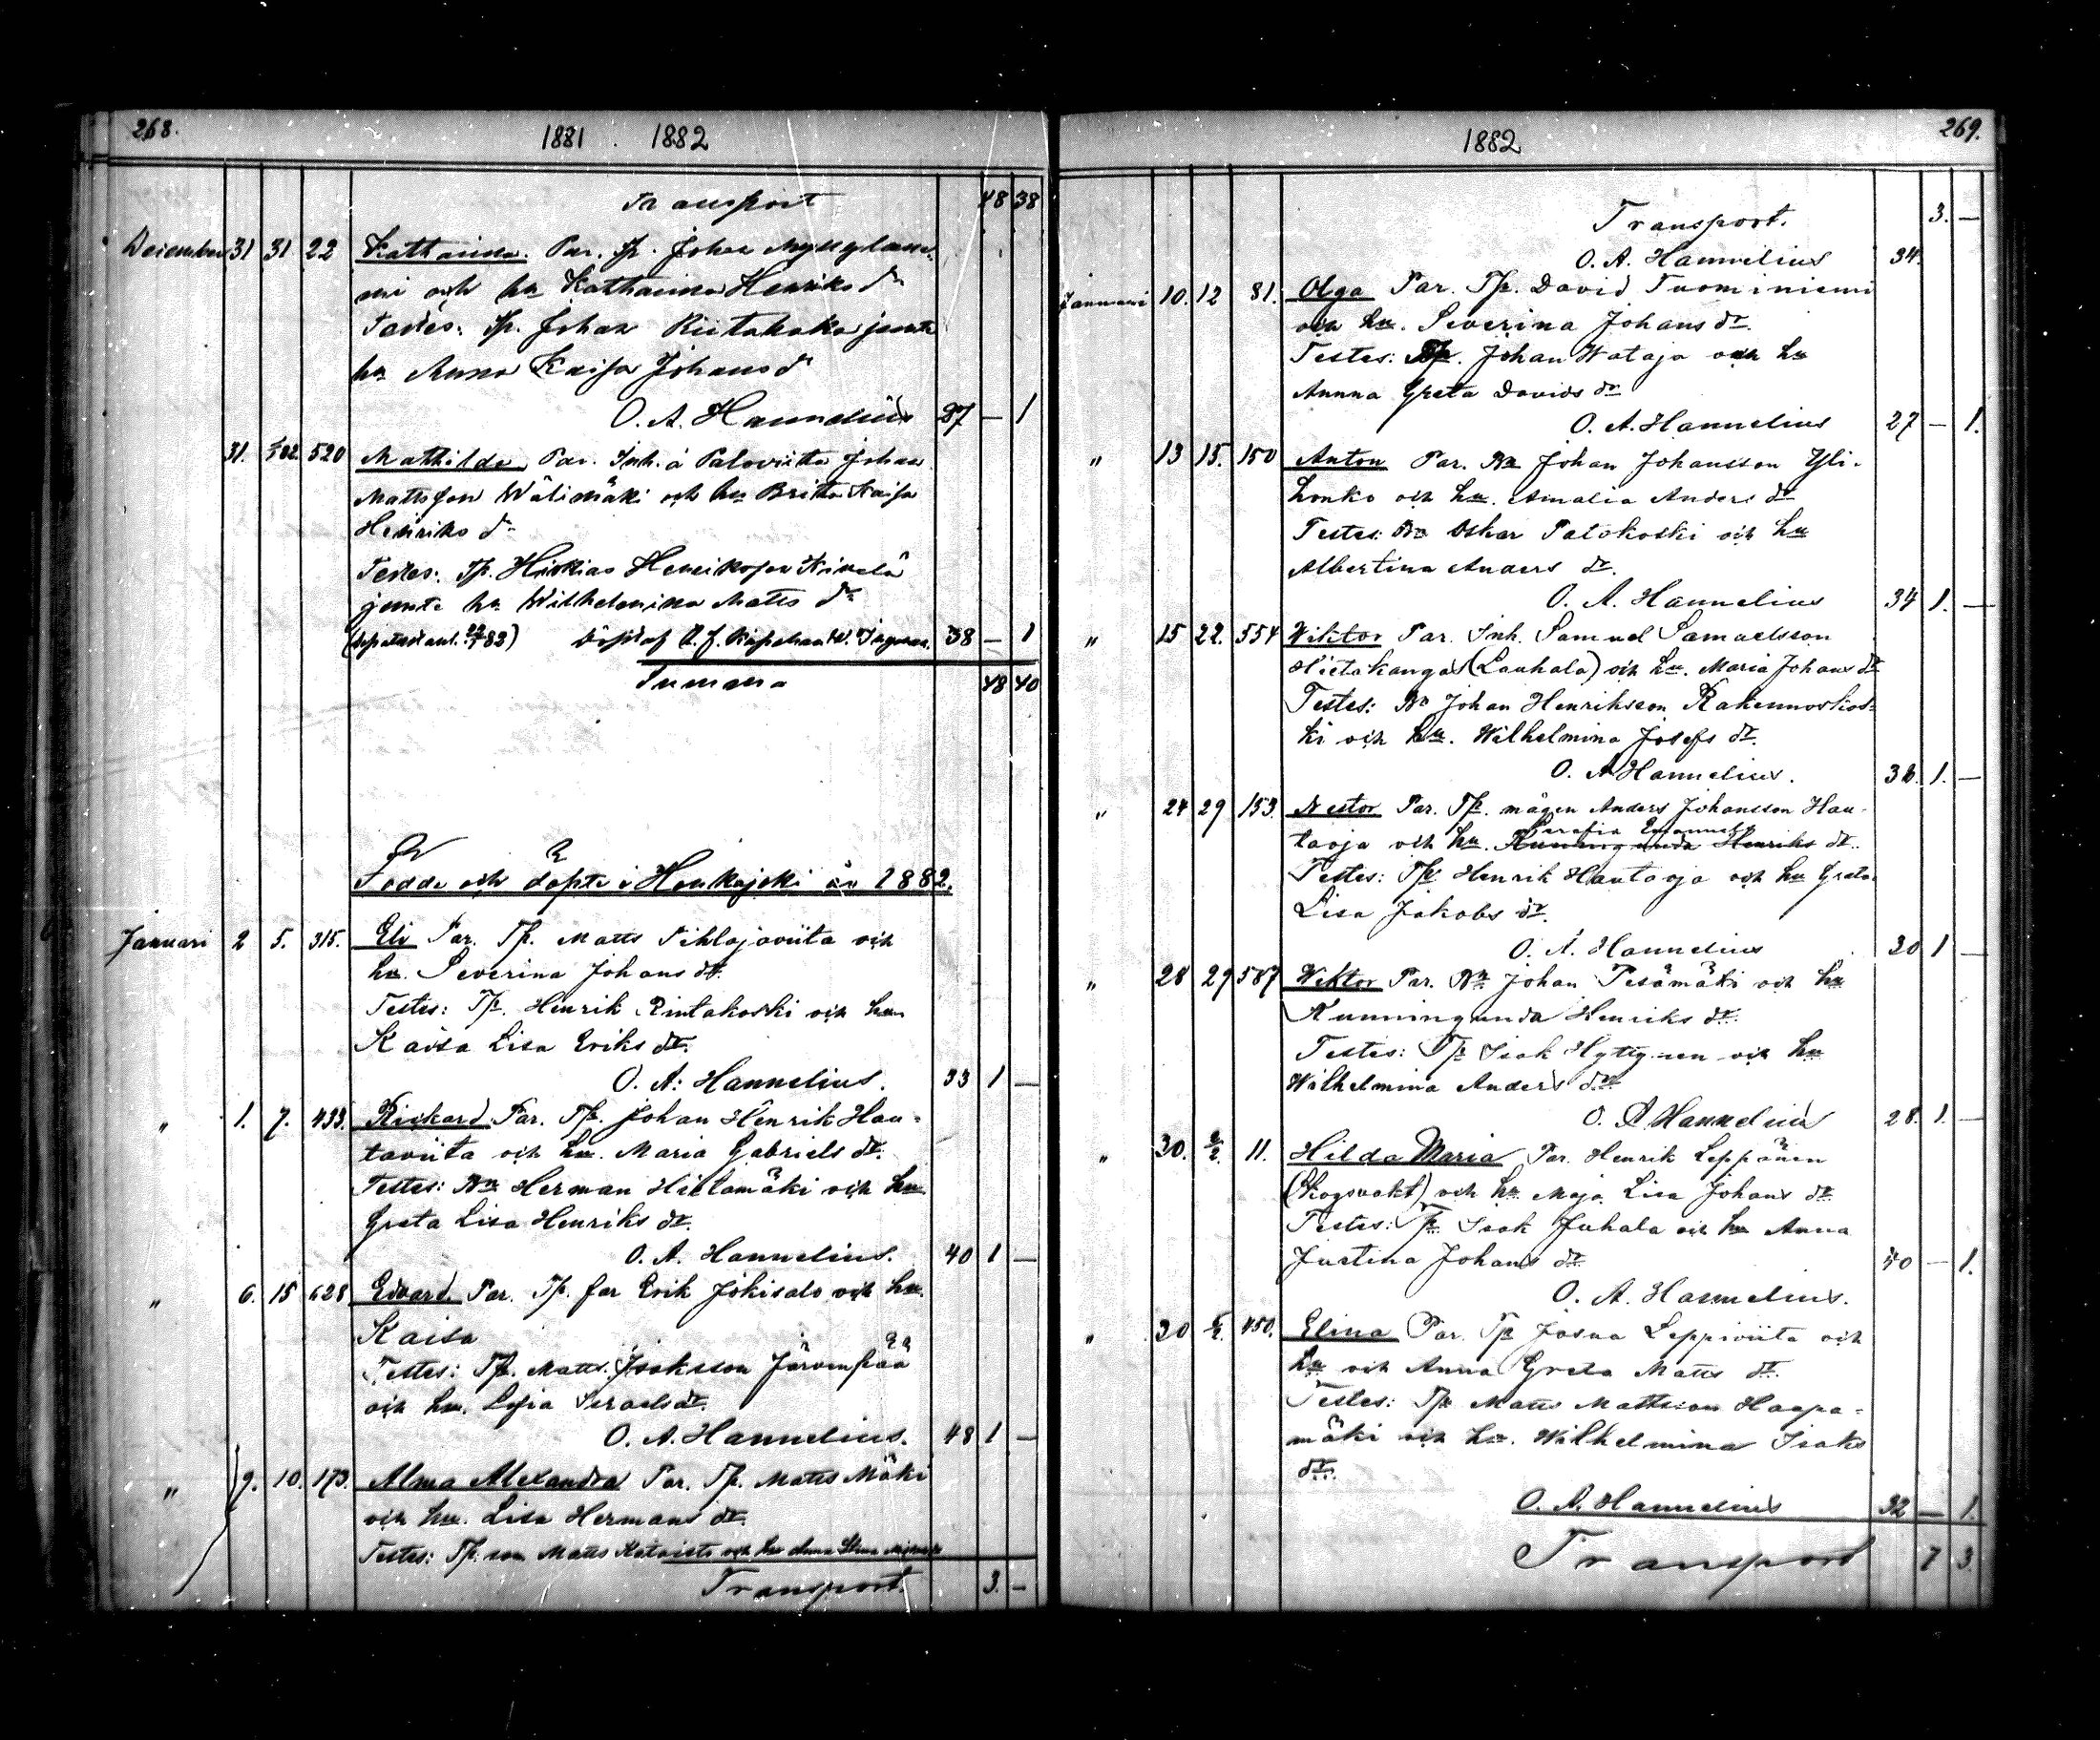 268.
1881 . 1882
Transport 48 38
December 31 31 22 Katharina. Par. Tp. Johan Myllyla
mi och hu Katharina Henriks dr
Testes: Tp. Johan Riitakoko jemte
hu Anna Kaisa Johans dr
O. A. Hannelius 37 — 1
31. 520 Mathilda Par. Inh. å Paloviita Johan
Mattsson Wälimäki och hu Britta Kaisa
Henriks dr
Testes: Tp. Hiskias Henriksson Nivelä
jemte hu Wilhelmina Matts dr
Döpt af W. Ingman. 38 — 1
Summa 48 40
Födde och döpte i Honkajoki år 1882.
Januari 2 5. 315. Eli Par. Tp. Matts Pihlajaviita och
hu. Severina Johans dr.
Testes: Tp. Henrik Rintakoski och hu
Kaisa Lisa Eriks dr.
O. A. Hannelius. 33 1 —
" 1. 7. 433. Rickard Par. Tp. Johan Henrik Hau-
taviita och hu. Maria Gabriels dr.
Testes: Bn Herman Hietamäki och hu
Greta Lisa Henriks dr.
O. A. Hannelius. 40 1 —
" 6. 15 628 Edvard. Par. Tp. far Erik Jokisalo och hu
Kaisa
Testes: Tp. Matts Isaksson Järvenpää
och hu. Lisa Israels dr.
O. A. Hannelius. 48 1 —
" 9. 10. 173. Alma Alexandra Par. Tp. Matts Mäki
och hu. Lisa Hermans dr.
Testes: Tp. son Matts Ketoviita och hu Anna
Transport. 3. —
269.
1882
Transport. 3. —
O. A. Hannelius 34.
Januari 10. 12 81. Olga Par. Tp. David Tuominiemi
och hu. Severina Johans dr.
Testes: Tp. Johan Wataja och hu
Annna Greta Davids dr
O. A. Hannelius 27 — 1.
" 13 15. 150 Anton Par. Bn Johan Johansson Yli-
honko och hu. Amalia Anders dr
Testes: Bn Oskar Palokoski och hu
Albertina Anders dr.
O. A. Hannelius 34 1. —
" 15 22. 554 Wiktor Par. Inh. Samuel Samuelsson
Hietakangas (Lauhala) och hu. Maria Johans dr
Testes: Bn Johan Henriksson Rakennuskos-
ki och hu. Wilhelmina Josefs dr.
O. A. Hannelius. 1. —
" 24 29 153. Nestor Par. Tp. mågen Anders Johansson Hau-
Serafia Emanuels
taoja och hu. Kunningunda Henriks dr.
Testes: Tp. Henrik Hautaoja och hu Greta
Lisa Jakobs dr.
O. A. Hannelius 30 1 —
" 28 29 587 Wiktor Par. Bn Johan Pesämäki och hu
Kunningunda Henriks dr.
Testes: Tp Isak Hyttynen och hu
Wilhelmina Anders dr.
O. A. Hannelius 28. 1. —
" 30. 2/2. 11. Hilda Maria Par. Henrik Leppänen
(Skogsvakt) och hu Maja Lisa Johans dr
Testes: Tp. Isak Juhala och hu Anna
Justina Johans dr 40 — 1.
O. A. Hannelius.
" 30 5/2. 450. Elina Par. Tp Josua Leppiviita och
hu och Anna Greta Matts dr.
Testes: Tp Matts Mattsson Haapa-
mäki och hu. Wilhelmina Isaks
dr.
O. A. Hannelius 32 — 1.
Transport 7 3